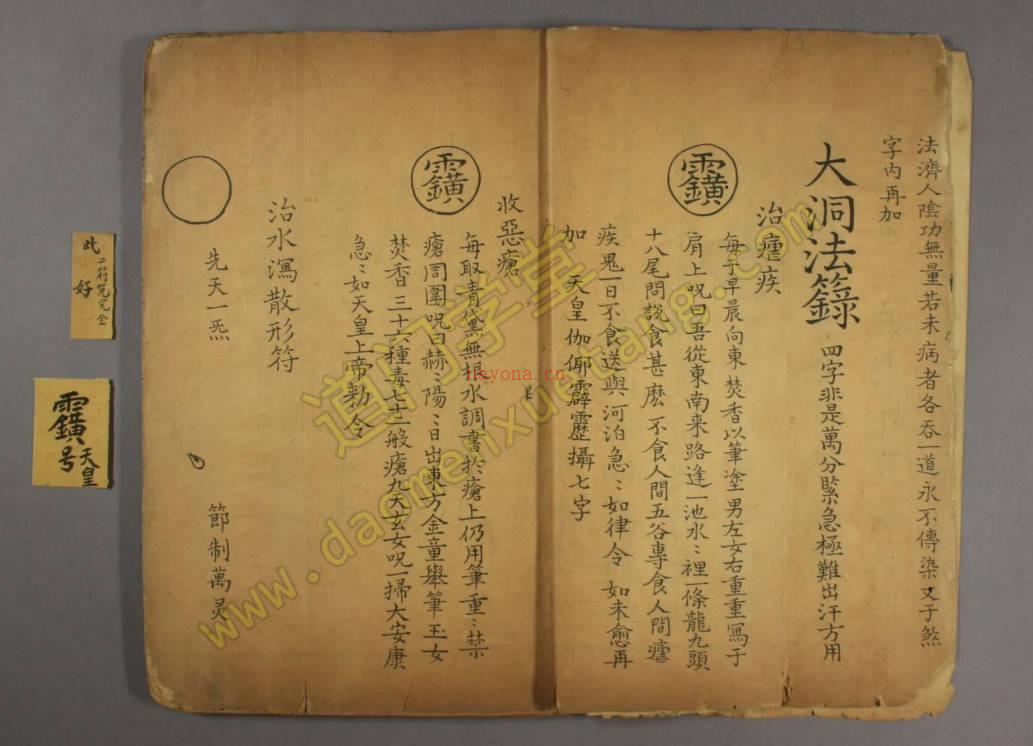 法濟人陰功無量若未病者各吞一道永不傳染又于煞
字內再加
大洞法籙 四字非是萬分緊急極難出汗方用
治瘧疾
每于早晨向東焚香以筆塗一男左女右重重寫于
肩上呪曰吾從東南来路逢一池水〻裡一條龍九頭
十八尾問說食甚麽不食人間五谷專食人間瘧
疾鬼一日不食送與河泊急〻如律令 如未愈再
加 天皇伽倻霹靂攝七字
收惡瘡
每取青黛無根水調書於瘡上仍用筆重〻禁
瘡周圍呪曰赫〻陽〻日出東方金童舉筆玉女
焚香三十六種毒七十二般瘡九天玄女呪一掃大安康
急〻如天皇上帝勅令
治水瀉散形符
先天一炁
節制萬灵
此二符咒完全
好
天皇
号
道门学堂
www.daomenxuetang.com
nsyona.cn